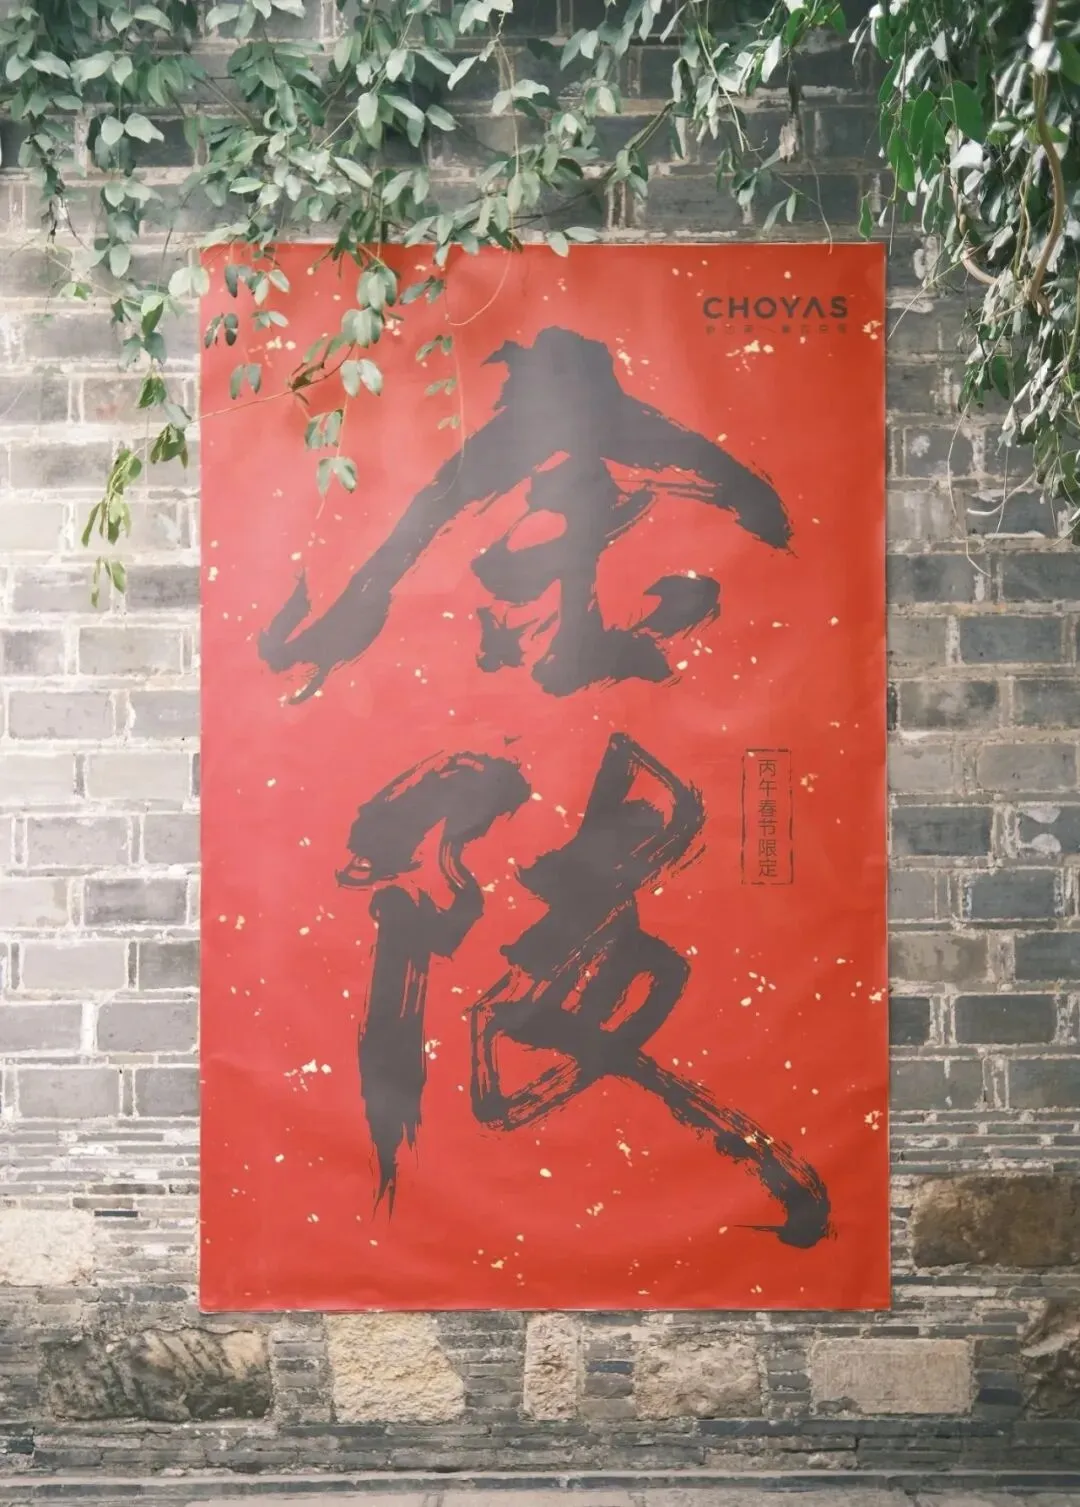 CHOYAS
金陵
丙午春节限定